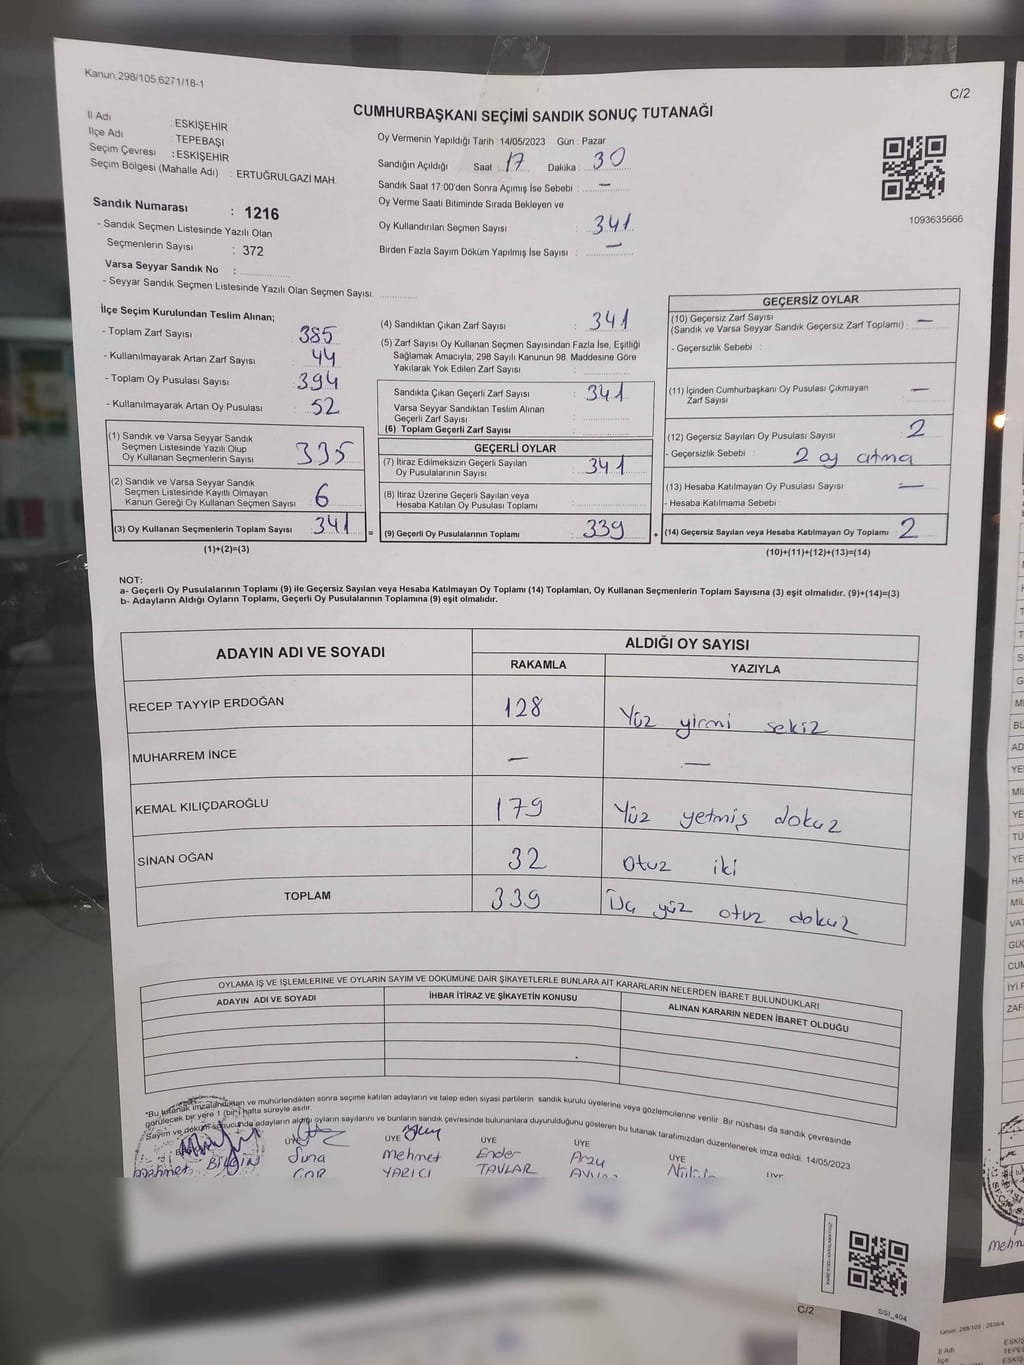 Kanun:298/105;6271/18-1
C/2
CUMHURBAŞKANI SEÇİMİ SANDIK SONUÇ TUTANAĞI
İl Adı : ESKİŞEHİR
İlçe Adı : TEPEBAŞI
Seçim Çevresi : ESKİŞEHİR
Seçim Bölgesi (Mahalle Adı) : ERTUĞRULGAZİ MAH.
Sandık Numarası : 1216
- Sandık Seçmen Listesinde Yazılı Olan
Seçmenlerin Sayısı : 372
Varsa Seyyar Sandık No :
- Seyyar Sandık Seçmen Listesinde Yazılı Olan Seçmen Sayısı:
Oy Vermenin Yapıldığı Tarih : 14/05/2023 Gün : Pazar
Sandığın Açıldığı Saat : 17 Dakika : 30
Sandık Saat 17.00'den Sonra Açımış İse Sebebi : —
Oy Verme Saati Bitiminde Sırada Bekleyen ve
Oy Kullandırılan Seçmen Sayısı : 341
Birden Fazla Sayım Döküm Yapılmış İse Sayısı : —
1093635666
İlçe Seçim Kurulundan Teslim Alınan;
- Toplam Zarf Sayısı : 385
- Kullanılmayarak Artan Zarf Sayısı : 44
- Toplam Oy Pusulası Sayısı : 394
- Kullanılmayarak Artan Oy Pusulası : 52
(1) Sandık ve Varsa Seyyar Sandık
Seçmen Listesinde Yazılı Olup
Oy Kullanan Seçmenlerin Sayısı : 335
(2) Sandık ve Varsa Seyyar Sandık
Seçmen Listesinde Kayıtlı Olmayan
Kanun Gereği Oy Kullanan Seçmen Sayısı : 6
(3) Oy Kullanan Seçmenlerin Toplam Sayısı : 341 =
(1)+(2)=(3)
(4) Sandıktan Çıkan Zarf Sayısı : 341
(5) Zarf Sayısı Oy Kullanan Seçmen Sayısından Fazla İse, Eşitliği
Sağlamak Amacıyla; 298 Sayılı Kanunun 98. Maddesine Göre
Yakılarak Yok Edilen Zarf Sayısı :
Sandıkta Çıkan Geçerli Zarf Sayısı : 341
Varsa Seyyar Sandıktan Teslim Alınan
Geçerli Zarf Sayısı :
(6) Toplam Geçerli Zarf Sayısı :
GEÇERLİ OYLAR
(7) İtiraz Edilmeksizin Geçerli Sayılan
Oy Pusulalarının Sayısı : 341
(8) İtiraz Üzerine Geçerli Sayılan veya
Hesaba Katılan Oy Pusulası Toplamı :
(9) Geçerli Oy Pusulalarının Toplamı : 339 +
GEÇERSİZ OYLAR
(10) Geçersiz Zarf Sayısı
(Sandık ve Varsa Seyyar Sandık Geçersiz Zarf Toplamı) : —
- Geçersizlik Sebebi :
(11) İçinden Cumhurbaşkanı Oy Pusulası Çıkmayan
Zarf Sayısı : —
(12) Geçersiz Sayılan Oy Pusulası Sayısı : 2
- Geçersizlik Sebebi : 2 oy atma
(13) Hesaba Katılmayan Oy Pusulası Sayısı : —
- Hesaba Katılmama Sebebi :
(14) Geçersiz Sayılan veya Hesaba Katılmayan Oy Toplamı : 2
(10)+(11)+(12)+(13)=(14)
NOT:
a- Geçerli Oy Pusulalarının Toplamı (9) ile Geçersiz Sayılan veya Hesaba Katılmayan Oy Toplamı (14) Toplamları, Oy Kullanan Seçmenlerin Toplam Sayısına (3) eşit olmalıdır. (9)+(14)=(3)
b- Adayların Aldığı Oyların Toplamı, Geçerli Oy Pusulalarının Toplamına (9) eşit olmalıdır.
ADAYIN ADI VE SOYADI
ALDIĞI OY SAYISI
RAKAMLA YAZIYLA
RECEP TAYYİP ERDOĞAN 128 Yüz yirmi sekiz
MUHARREM İNCE — —
KEMAL KILIÇDAROĞLU 179 Yüz yetmiş dokuz
SİNAN OĞAN 32 Otuz iki
TOPLAM 339 Üç yüz otuz dokuz
OYLAMA İŞ VE İŞLEMLERİNE VE OYLARIN SAYIM VE DÖKÜMÜNE DAİR ŞİKAYETLERLE BUNLARA AİT KARARLARIN NELERDEN İBARET BULUNDUKLARI
ADAYIN ADI VE SOYADI
İHBAR İTİRAZ VE ŞİKAYETİN KONUSU
ALINAN KARARIN NEDEN İBARET OLDUĞU
*Bu tutanak imzalandıktan ve mühürlendikten sonra seçime katılan adayların ve talep eden siyasi partilerin sandık kurulu üyelerine veya gözlemcilerine verilir. Bir nüshası da sandık çevresinde
görülecek bir yere 1 (bir) hafta süreyle asılır.
Sayım ve döküm sonucunda adayların aldığı oyların sayılarını ve bunların sandık çevresinde bulunanlara duyurulduğunu gösteren bu tutanak tarafımızdan düzenlenerek imza edildi. 14/05/2023
ÜYE ÜYE ÜYE ÜYE ÜYE ÜYE
Mehmet BİLGİN
Suna
Mehmet YAZICI
Ender TAVLAR
Arzu
C/2
SSİ_404
Mehm
Kanun: 298/105 ; 2839/4
İl Adı
İlçe
ESKİŞ
TEPE
ESKİŞ